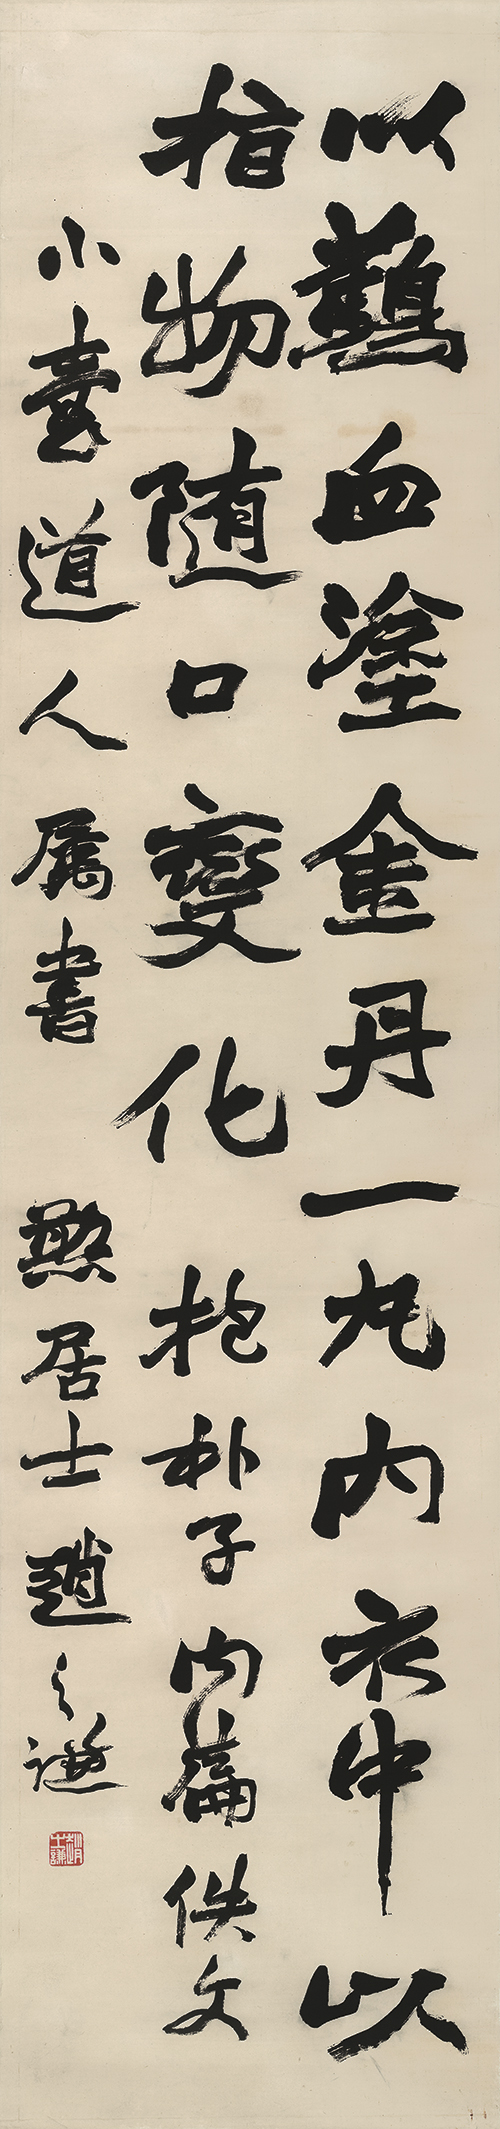 以鷄血塗金丹一丸内衣中以
指物随口變化 抱朴子内篇佚文
小臺道人属書 憨居士趙之謙
趙之謙